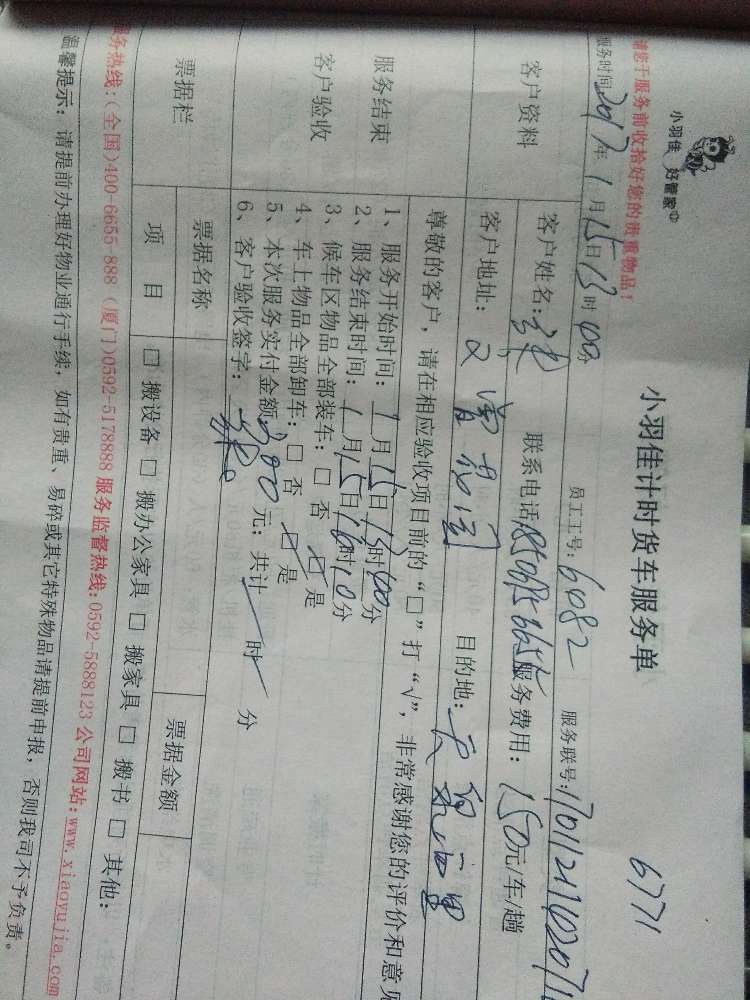 小羽佳 好管家
6771
小羽佳计时货车服务单
请您于服务前收拾好您的贵重物品！
服务时间:2017年1月15日13时00分 员工工号:6082 服务联号:
客户资料
客户姓名: 联系电话: 服务费用: 150元/车/趟
客户地址: 目的地:
服务结束
客户验收
尊敬的客户，请在相应验收项目前的“□”打“√”，非常感谢您的评价和意见
1、服务开始时间: 1月15日13时00分
2、服务结束时间: 1月15日16时10分
3、候车区物品全部装车: □ 否 ☑ 是
4、车上物品全部卸车: □ 否 ☑ 是
5、本次服务实付金额 300元; 共计 时 分
6、客户验收签字:
票据栏
票据名称 票据金额
项 目 □ 搬设备 □ 搬办公家具 □ 搬家具 □ 搬书 □ 其他:
服务热线:(全国)400-6655-888 (厦门)0592-5178888 服务监督热线:0592-5888123 公司网站:www.xiaoyujia.com
温馨提示: 请提前办理好物业通行手续; 如有贵重、易碎或其它特殊物品请提前申报, 否则我司不予负责。